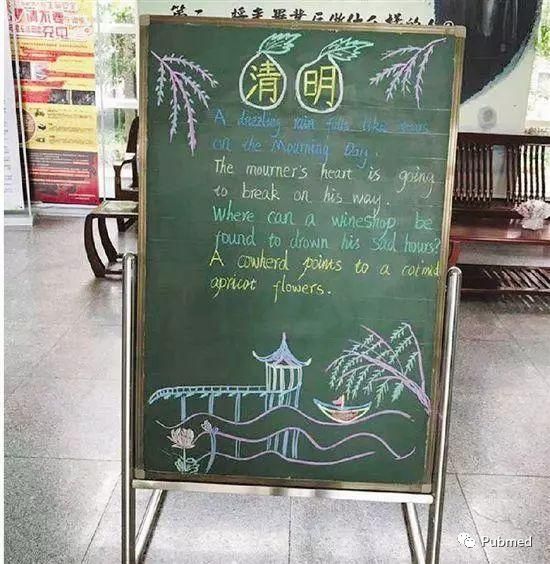 第二 将来畢業后做什么样的人
请不要
清明
A dazzling rain falls like tears
on the Mourning Day.
The mourner's heart is going
to break on his way.
Where can a wineshop be
found to drown his sad hours?
A cowherd points to a cotmid
apricot flowers.
Pubmed